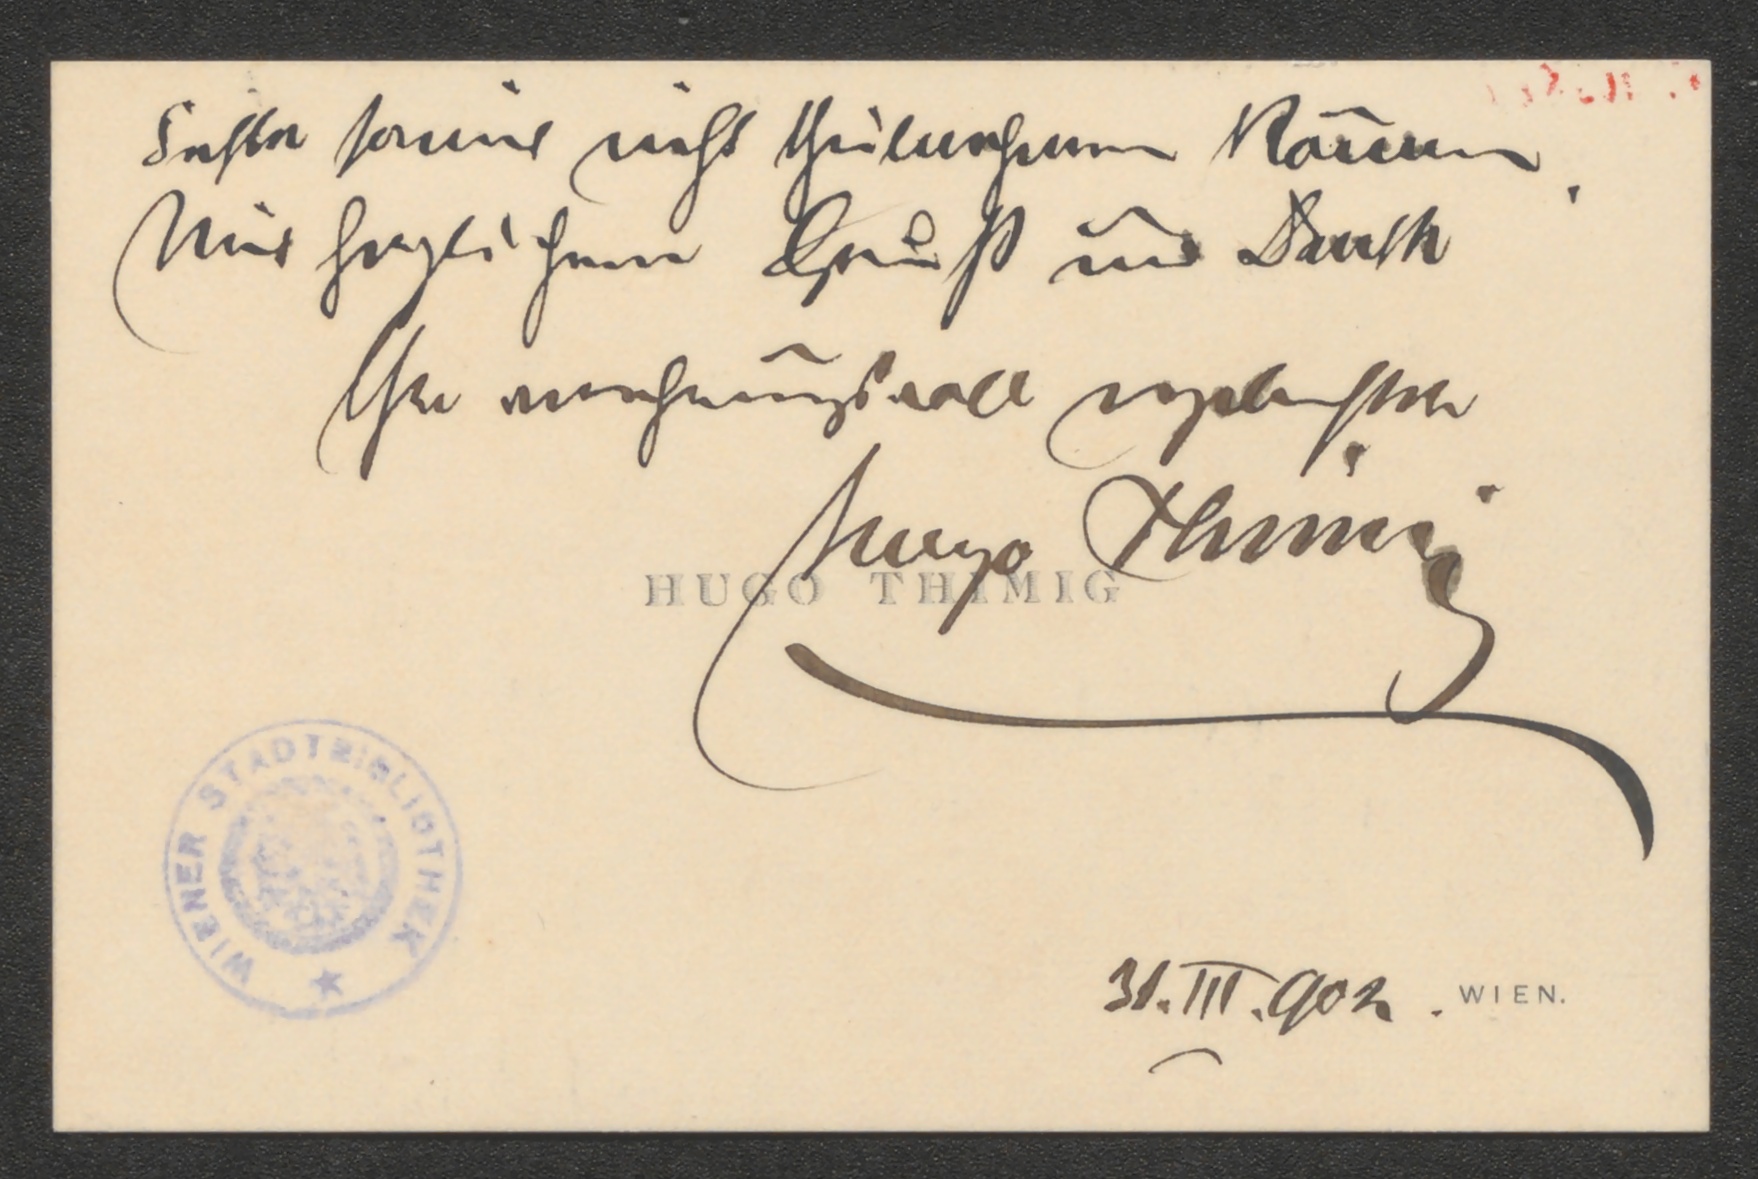 Feste somit nicht theilnehmen kann.
Mit herzlichem Gruß und Dank
Ihr verehrungsvoll ergebenster
Hugo Thimig
HUGO THIMIG
WIENER STADTBIBLIOTHEK
31.III.902. WIEN.